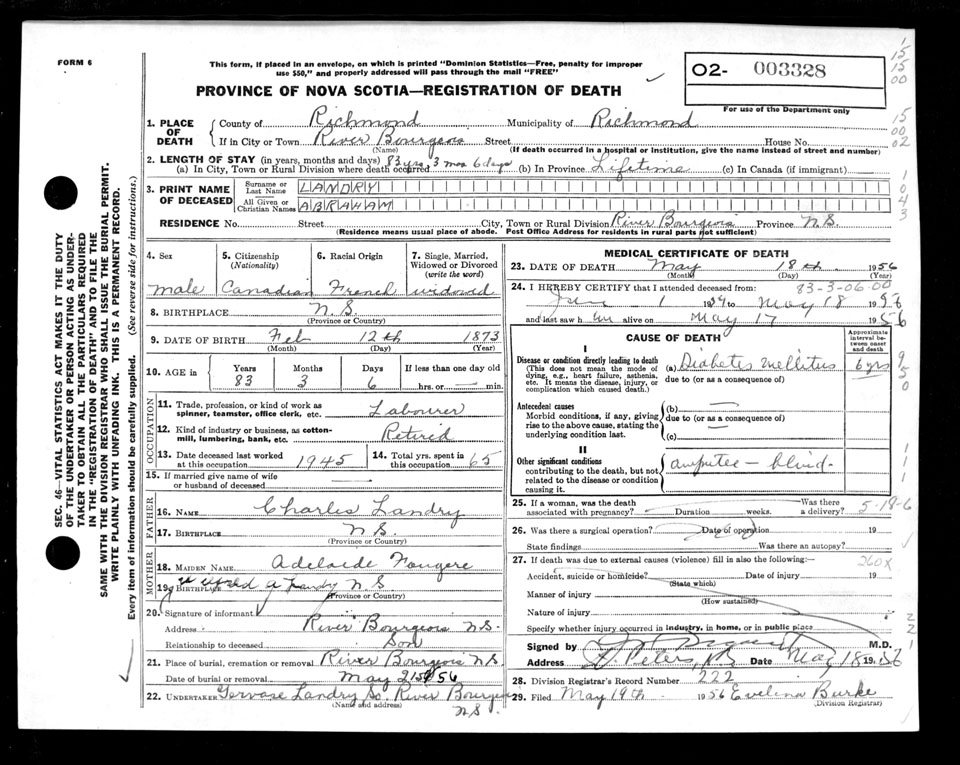 FORM 6
This form, if placed in an envelope, on which is printed "Dominion Statistics—Free, penalty for improper
use $50," and properly addressed will pass through the mail "FREE"
02- 003328
For use of the Department only
PROVINCE OF NOVA SCOTIA—REGISTRATION OF DEATH
1. PLACE OF DEATH
County of Richmond Municipality of Richmond
If in City or Town River Bourgeois Street House No.
(Name) (If death occurred in a hospital or institution, give the name instead of street and number)
2. LENGTH OF STAY (in years, months and days) 83 yrs. 3 mos 6 days
(a) In City, Town or Rural Division where death occurred (b) In Province Lifetime (c) In Canada (if immigrant)
3. PRINT NAME OF DECEASED
Surname or Last Name LANDRY
All Given or Christian Names ABRAHAM
RESIDENCE No. Street City, Town or Rural Division River Bourgeois Province N.S.
(Residence means usual place of abode. Post Office Address for residents in rural parts not sufficient)
4. Sex
male
5. Citizenship
(Nationality)
Canadian
6. Racial Origin
French
7. Single, Married,
Widowed or Divorced
(write the word)
widowed
8. BIRTHPLACE N.S.
(Province or Country)
9. DATE OF BIRTH Feb 12th 1873
(Month) (Day) (Year)
10. AGE in Years Months Days If less than one day old
83 3 6 hrs. or min.
OCCUPATION
11. Trade, profession, or kind of work as
spinner, teamster, office clerk, etc. Labourer
12. Kind of industry or business, as cotton-
mill, lumbering, bank, etc. Retired
13. Date deceased last worked
at this occupation 1945
14. Total yrs. spent in
this occupation 65
15. If married give name of wife
or husband of deceased
FATHER
16. NAME Charles Landry
17. BIRTHPLACE N S
(Province or Country)
MOTHER
18. MAIDEN NAME Adelaide Fougere
19. BIRTHPLACE N S
(Province or Country)
20. Signature of informant
Address River Bourgeois N.S.
Relationship to deceased Son
21. Place of burial, cremation or removal River Bourgeois N.S.
Date of burial or removal May 21st 56
22. UNDERTAKER Gervase Landry So. River Bourgeois
(Name and address) N.S.
MEDICAL CERTIFICATE OF DEATH
23. DATE OF DEATH May 18th 1956
(Month) (Day) (Year)
24. I HEREBY CERTIFY that I attended deceased from: 83-3-06-00
1 19 to May 18 1956
and last saw h im alive on May 17 1956
CAUSE OF DEATH
Approximate interval between onset and death
I
Disease or condition directly leading to death
(This does not mean the mode of
dying, e.g., heart failure, asthenia,
etc. It means the disease, injury, or
complication which caused death.)
(a) Diabetes mellitus 6 yrs
due to (or as a consequence of)
Antecedent causes
Morbid conditions, if any, giving
rise to the above cause, stating the
underlying condition last.
(b)
due to (or as a consequence of)
(c)
II
Other significant conditions
contributing to the death, but not
related to the disease or condition
causing it.
amputee — blind-
25. If a woman, was the death
associated with pregnancy? Duration weeks. Was there a delivery?
5-18-6
26. Was there a surgical operation? Date of operation 19
State findings Was there an autopsy?
27. If death was due to external causes (violence) fill in also the following:
260X
Accident, suicide or homicide? Date of injury 19
(State which)
Manner of injury
(How sustained)
Nature of injury
Specify whether injury occurred in industry, in home, or in public place
Signed by M.D.
Address St Peters, N.S. Date May 18 1956
28. Division Registrar's Record Number 222
29. Filed May 19th 1956 Evelina Burke
(Division Registrar)
SEC. 46—VITAL STATISTICS ACT MAKES IT THE DUTY
OF THE UNDERTAKER OR PERSON ACTING AS UNDER-
TAKER TO OBTAIN ALL THE PARTICULARS REQUIRED
IN THE "REGISTRATION OF DEATH" AND TO FILE THE
SAME WITH THE DIVISION REGISTRAR WHO SHALL ISSUE THE BURIAL PERMIT.
WRITE PLAINLY WITH UNFADING INK. THIS IS A PERMANENT RECORD.
Every item of information should be carefully supplied. (See reverse side for instructions.)